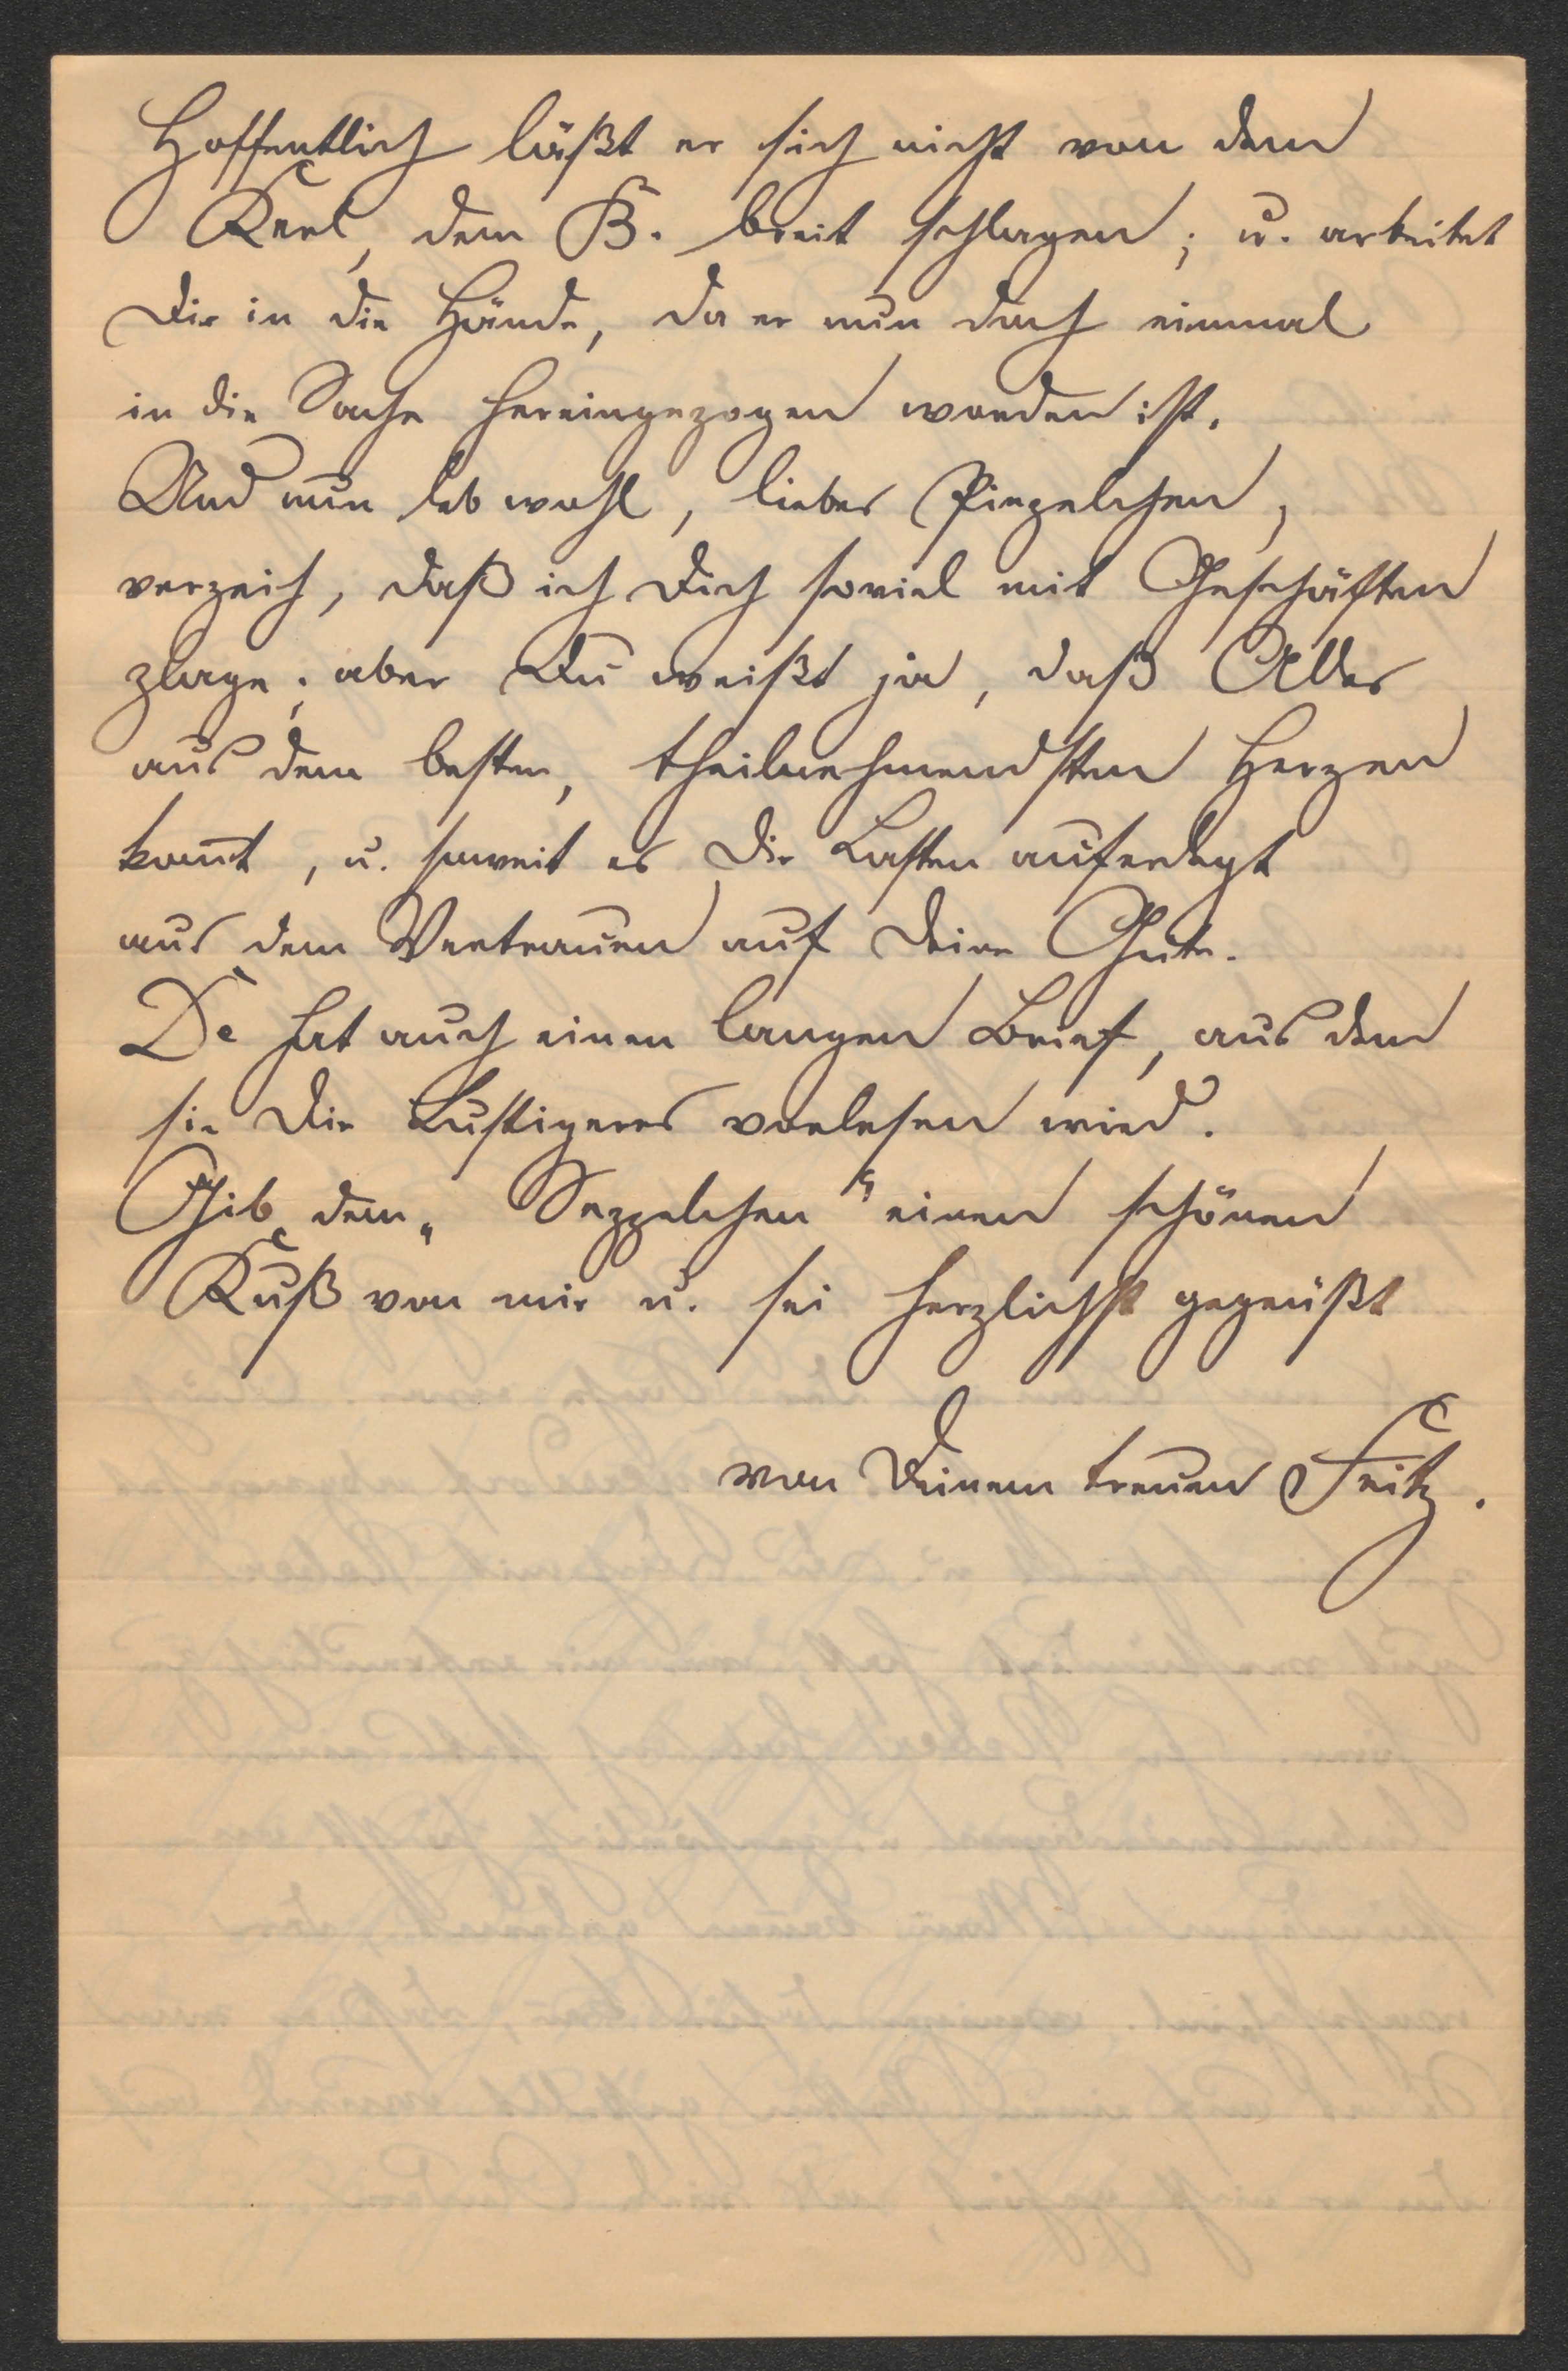 Hoffentlich läßt er sich nicht von dem
Kerl, dem B. breit schlagen; u. arbeitet
Dir in die Hände, da er nun doch einmal
in die Sache hereingezogen worden ist.
Und nun leb wohl, liebes Pinzelchen,
verzeih, daß ich Dich soviel mit Geschäften
plage; aber Du weißt ja, daß Alles
aus dem besten, theilnehmendsten Herzen
kom̄t, u. soweit es Dir Lasten auferlegt
aus dem Vertrauen auf Deine Güte.
De hat auch einen langen Brief, aus dem
sie Dir Lustigeres vorlesen wird.
Gib dem „Seppelchen“ einen schönen
Kuß von mir u. sei herzlichst gegrüßt
von Deinem treuen Fritz.